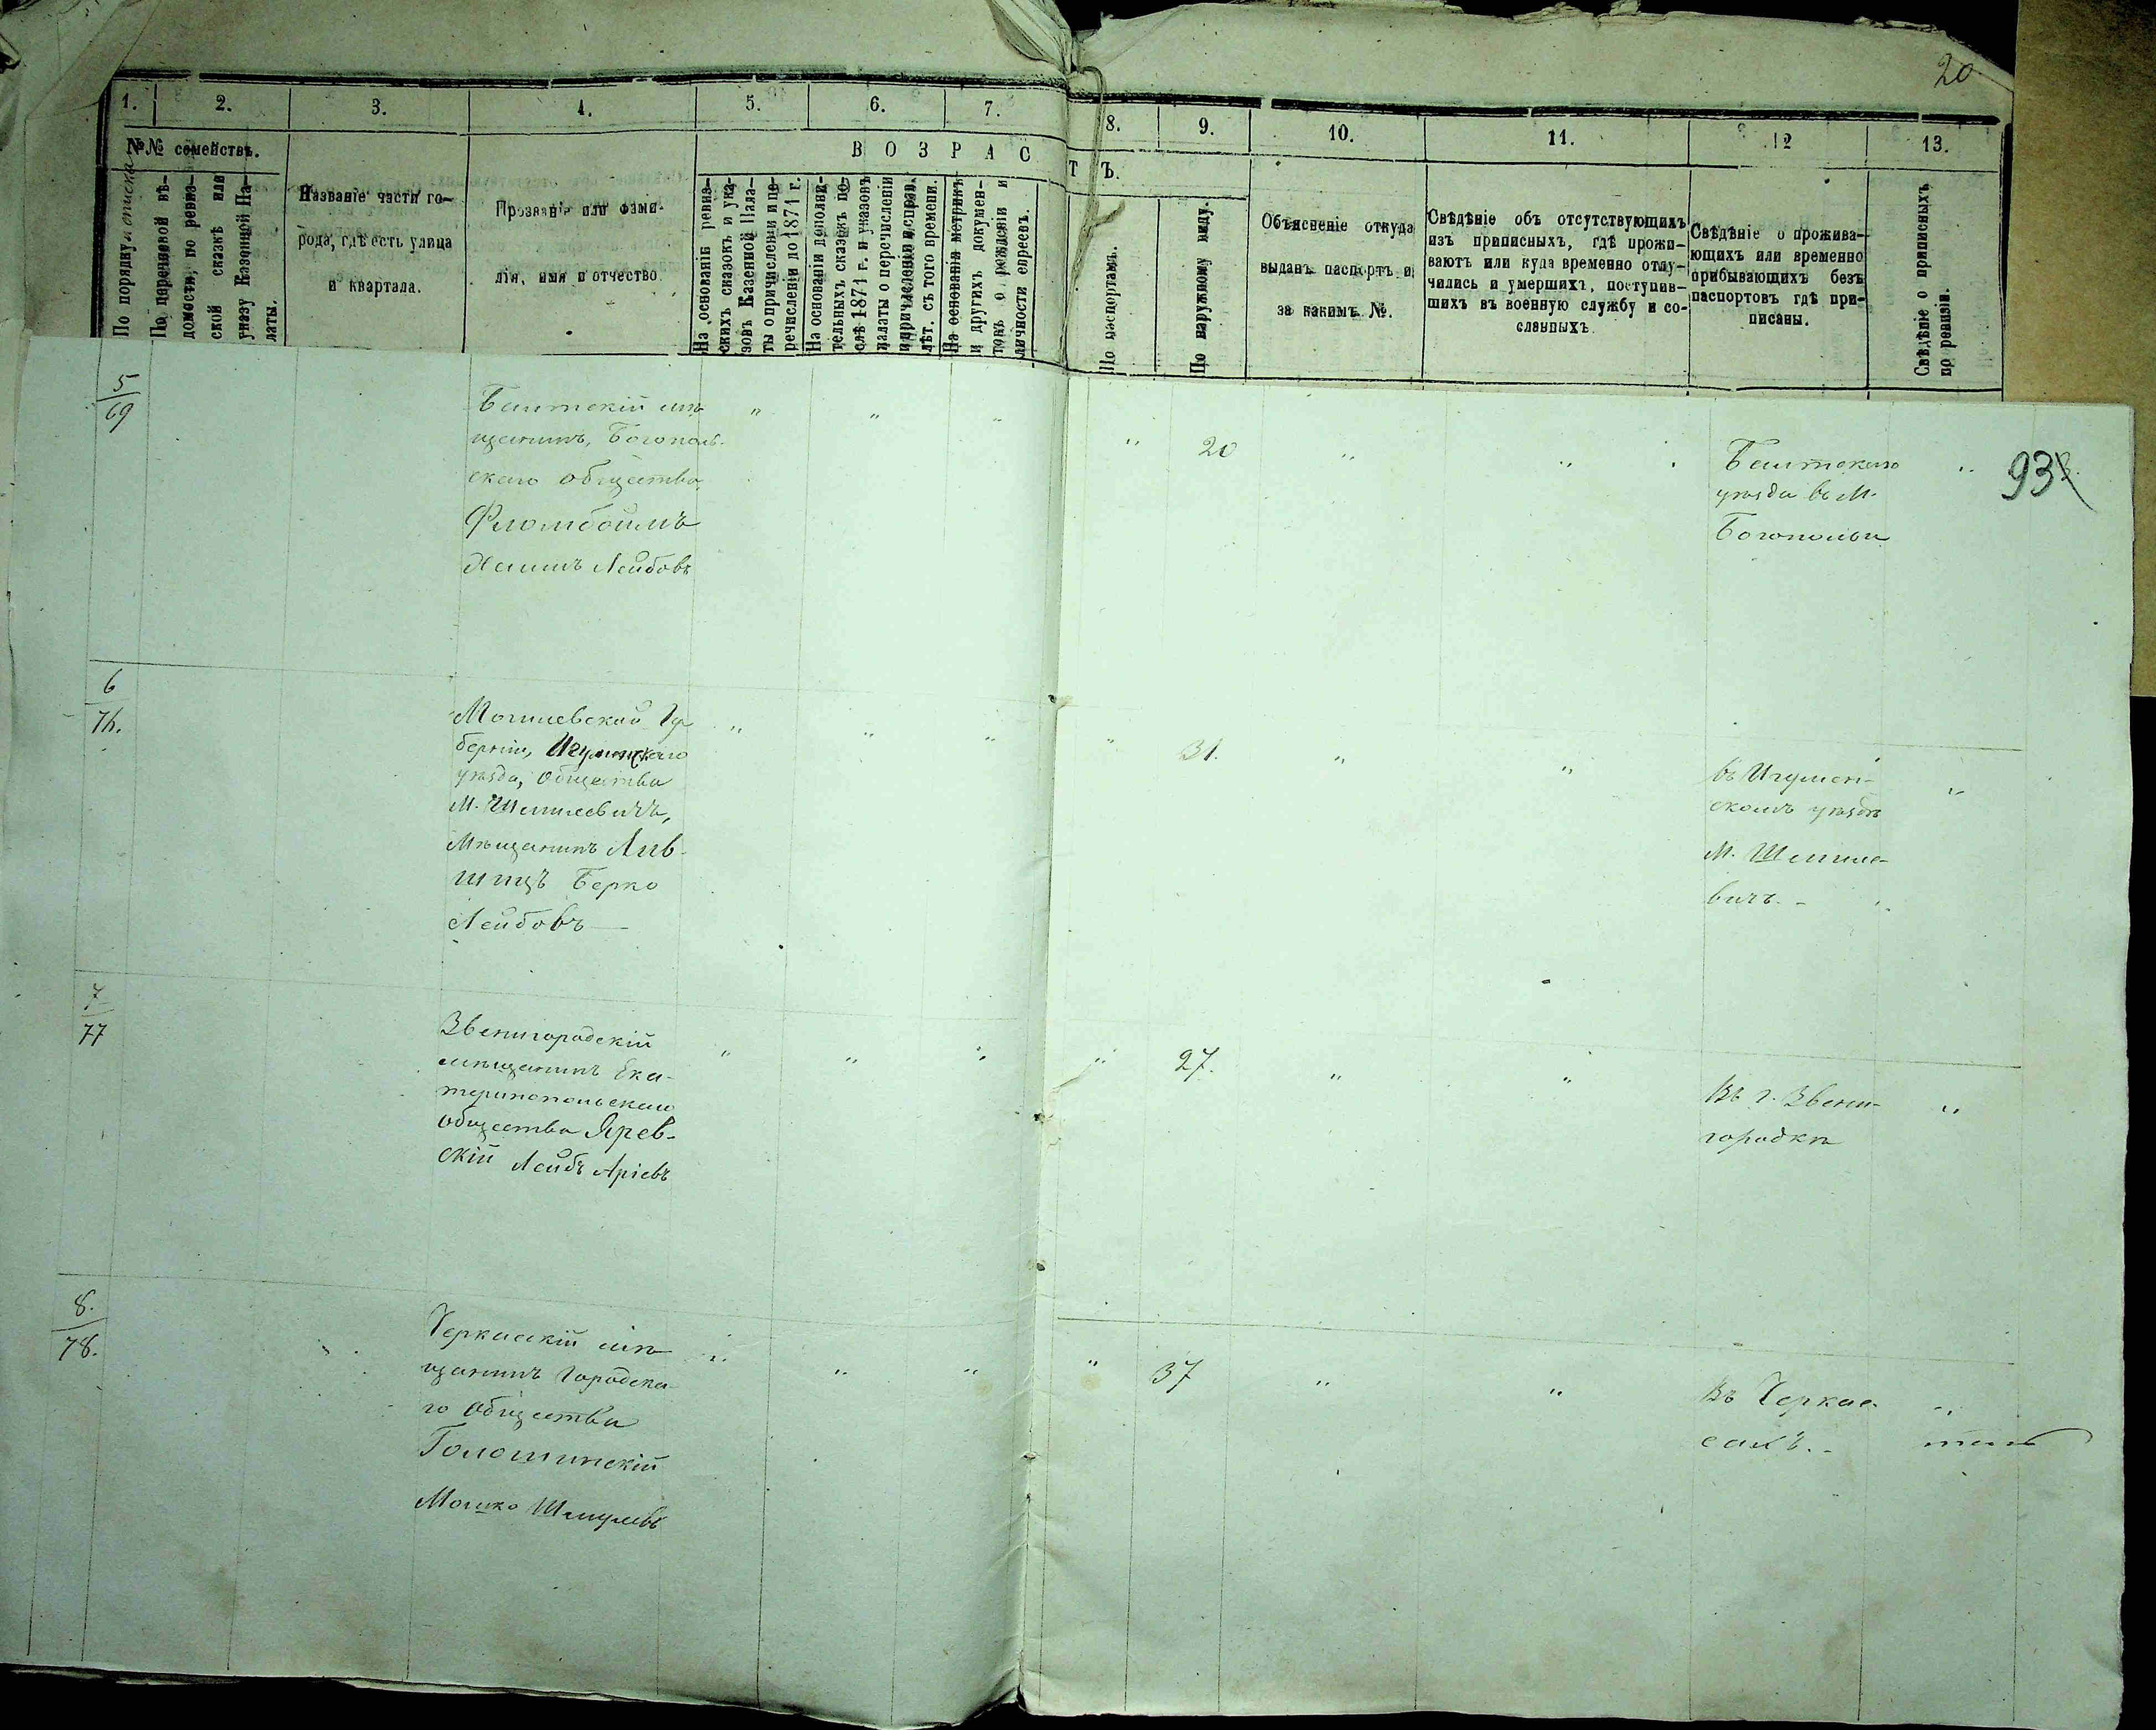 20
1. 2. 3. 4. 5. 6. 7. 8. 9. 10. 11. 12 13.
№№ семействъ.
ВОЗРАСТЪ.
По порядку списка
По перечневой вѣ-
домости, по ревиз-
ской сказкѣ или
указу Казенной Па-
латы.
Названіе части го-
рода, гдѣ есть улица
и квартала.
Прозваніе или фами-
лія, имя и отчество.
На основаніи ревиз-
скихъ сказокъ и ука-
зовъ Казенной Пала-
ты о причисленіи и пе-
речисленіи до 1871 г.
На основаніи дополни-
тельныхъ сказокъ по-
слѣ 1871 г. и указовъ
палаты о перечисленіи
и причисленіи исправ.
лѣт. съ того времени.
На основаніи метрикъ
и другихъ докумен-
товъ о рожденіи и
личности евреевъ.
По паспортамъ.
По наружному виду.
Объясненіе откуда
выданъ паспортъ и
за какимъ №.
Свѣдѣніе объ отсутствующихъ
изъ приписныхъ, гдѣ прожи-
ваютъ или куда временно отлу-
чились и умершихъ, поступив-
шихъ въ военную службу и со-
сланныхъ
Свѣдѣніе о прожива-
ющихъ или временно
прибывающихъ безъ
паспортовъ гдѣ при-
писаны.
Свѣдѣніе о приписныхъ
по ревизіи.
5
69
Балтскій мѣ
щанинъ, Богополь-
скаго общества
Фломбоимъ
Хаимъ Лейбовъ
" " " " 20 " "
Балтскаго
уѣзда въ м.
Богополѣ
"
93
6
76.
Могилевской Гу
берніи, Игуменскаго
уѣзда, общества
М. Шепилевичъ,
Мѣщанинъ Лив-
шицъ Берко
Лейбовъ
" " " " 31. " "
въ Игумен-
скомъ уѣздѣ
М. Шепиле-
вичъ. -
"
7
77
Звенигородскій
мѣщанинъ Ека-
теринопольскаго
общества Ярев-
скій Лейбъ Аріевъ
" " " " 27. " "
Въ г. Звени-
городкѣ
"
8.
78.
Черкаскій мѣ
щанинъ Городска-
го общества
Голошинскій
Мошко Шмулевъ
" " " " 37 " "
Въ Черка-
сахъ. -
"